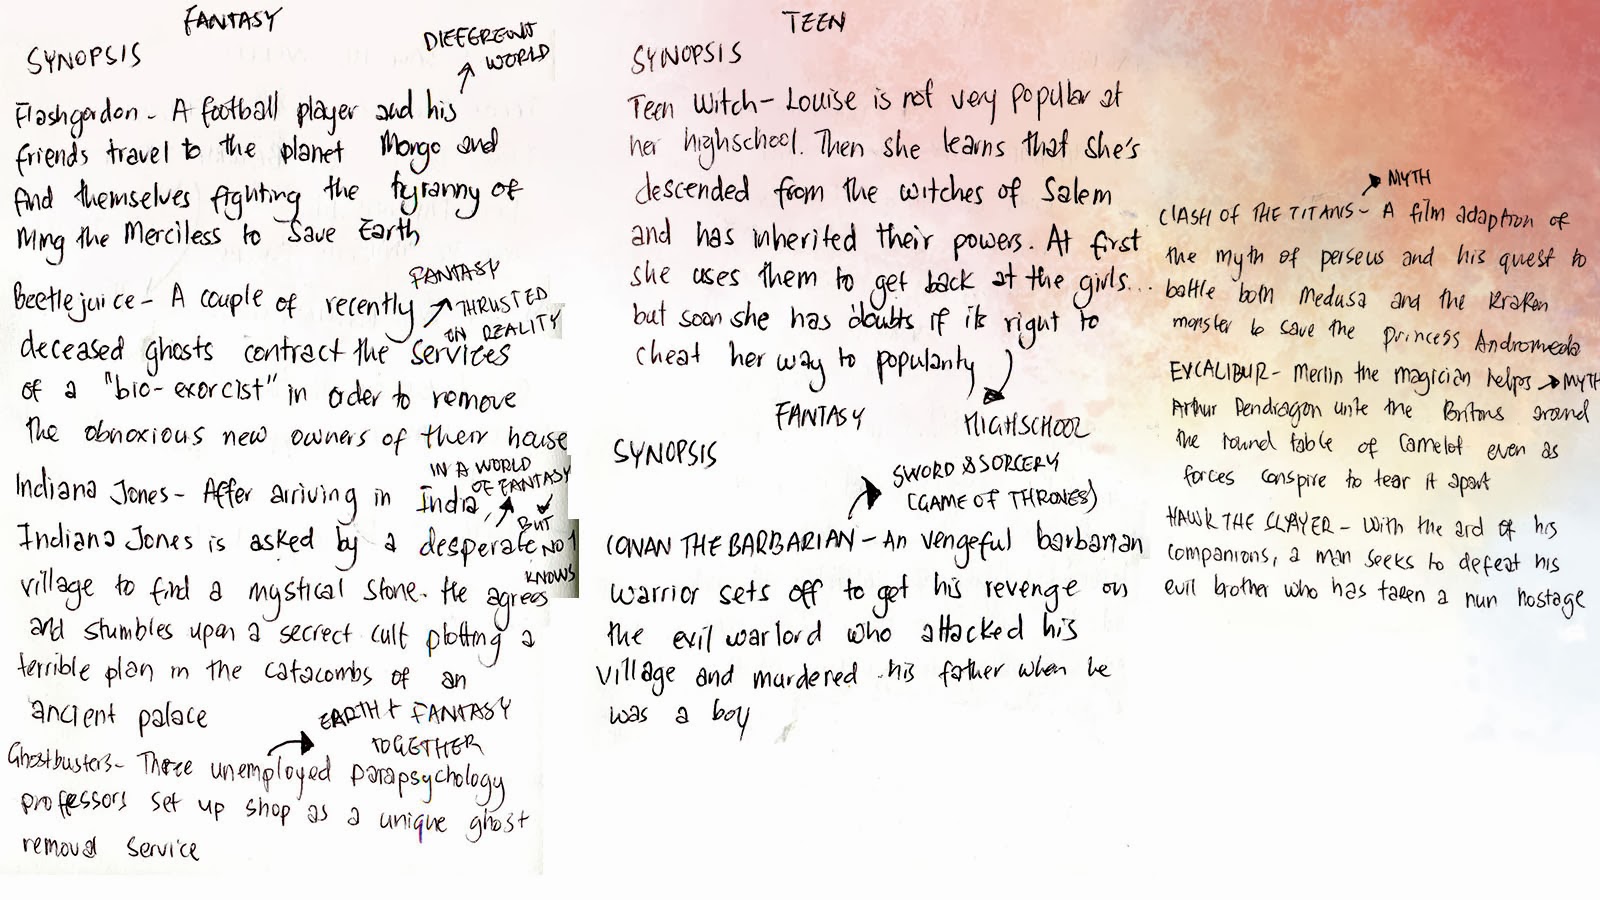 FANTASY
SYNOPSIS
DIFFERENT
WORLD
Flashgordon - A football player and his
friends travel to the planet Mongo and
find themselves fighting the tyranny of
Ming the Merciless to Save Earth
FANTASY
THRUSTED
IN REALITY
Beetlejuice - A couple of recently
deceased ghosts contract the services
of a "bio-exorcist" in order to remove
the obnoxious new owners of their house
IN A WORLD
OF FANTASY
BUT
NO 1
KNOWS
Indiana Jones - After arriving in India,
Indiana Jones is asked by a desperate
village to find a mystical stone. He agrees
and stumbles upon a secrect cult plotting a
terrible plan in the catacombs of an
ancient palace
EARTH + FANTASY
TOGETHER
Ghostbusters - Three unemployed parapsychology
proffessors set up shop as a unique ghost
removal service
TEEN
SYNOPSIS
Teen Witch - Louise is not very popular at
her highschool. Then she learns that she's
descended from the witches of Salem
and has inherited their powers. At first
she uses them to get back at the girls...
but soon she has doubts if its right to
cheat her way to popularity
HIGHSCHOOL
FANTASY
SYNOPSIS
SWORD & SORCERY
(GAME OF THRONES)
CONAN THE BARBARIAN - An vengeful barbarian
warrior sets off to get his revenge on
the evil warlord who attacked his
village and murdered his father when he
was a boy
MYTH
CLASH OF THE TITANS - A film adaption of
the myth of perseus and his quest to
battle both Medusa and the Kraken
monster to save the princess Andromeda
EXCALIBUR - Merlin the magician helps MYTH
Arthur Pendragon unite the Britons around
the round table of Camelot even as
forces conspire to tear it apart
HAWK THE SLAYER - With the aid of his
companions, a man seeks to defeat his
evil brother who has taken a nun hostage